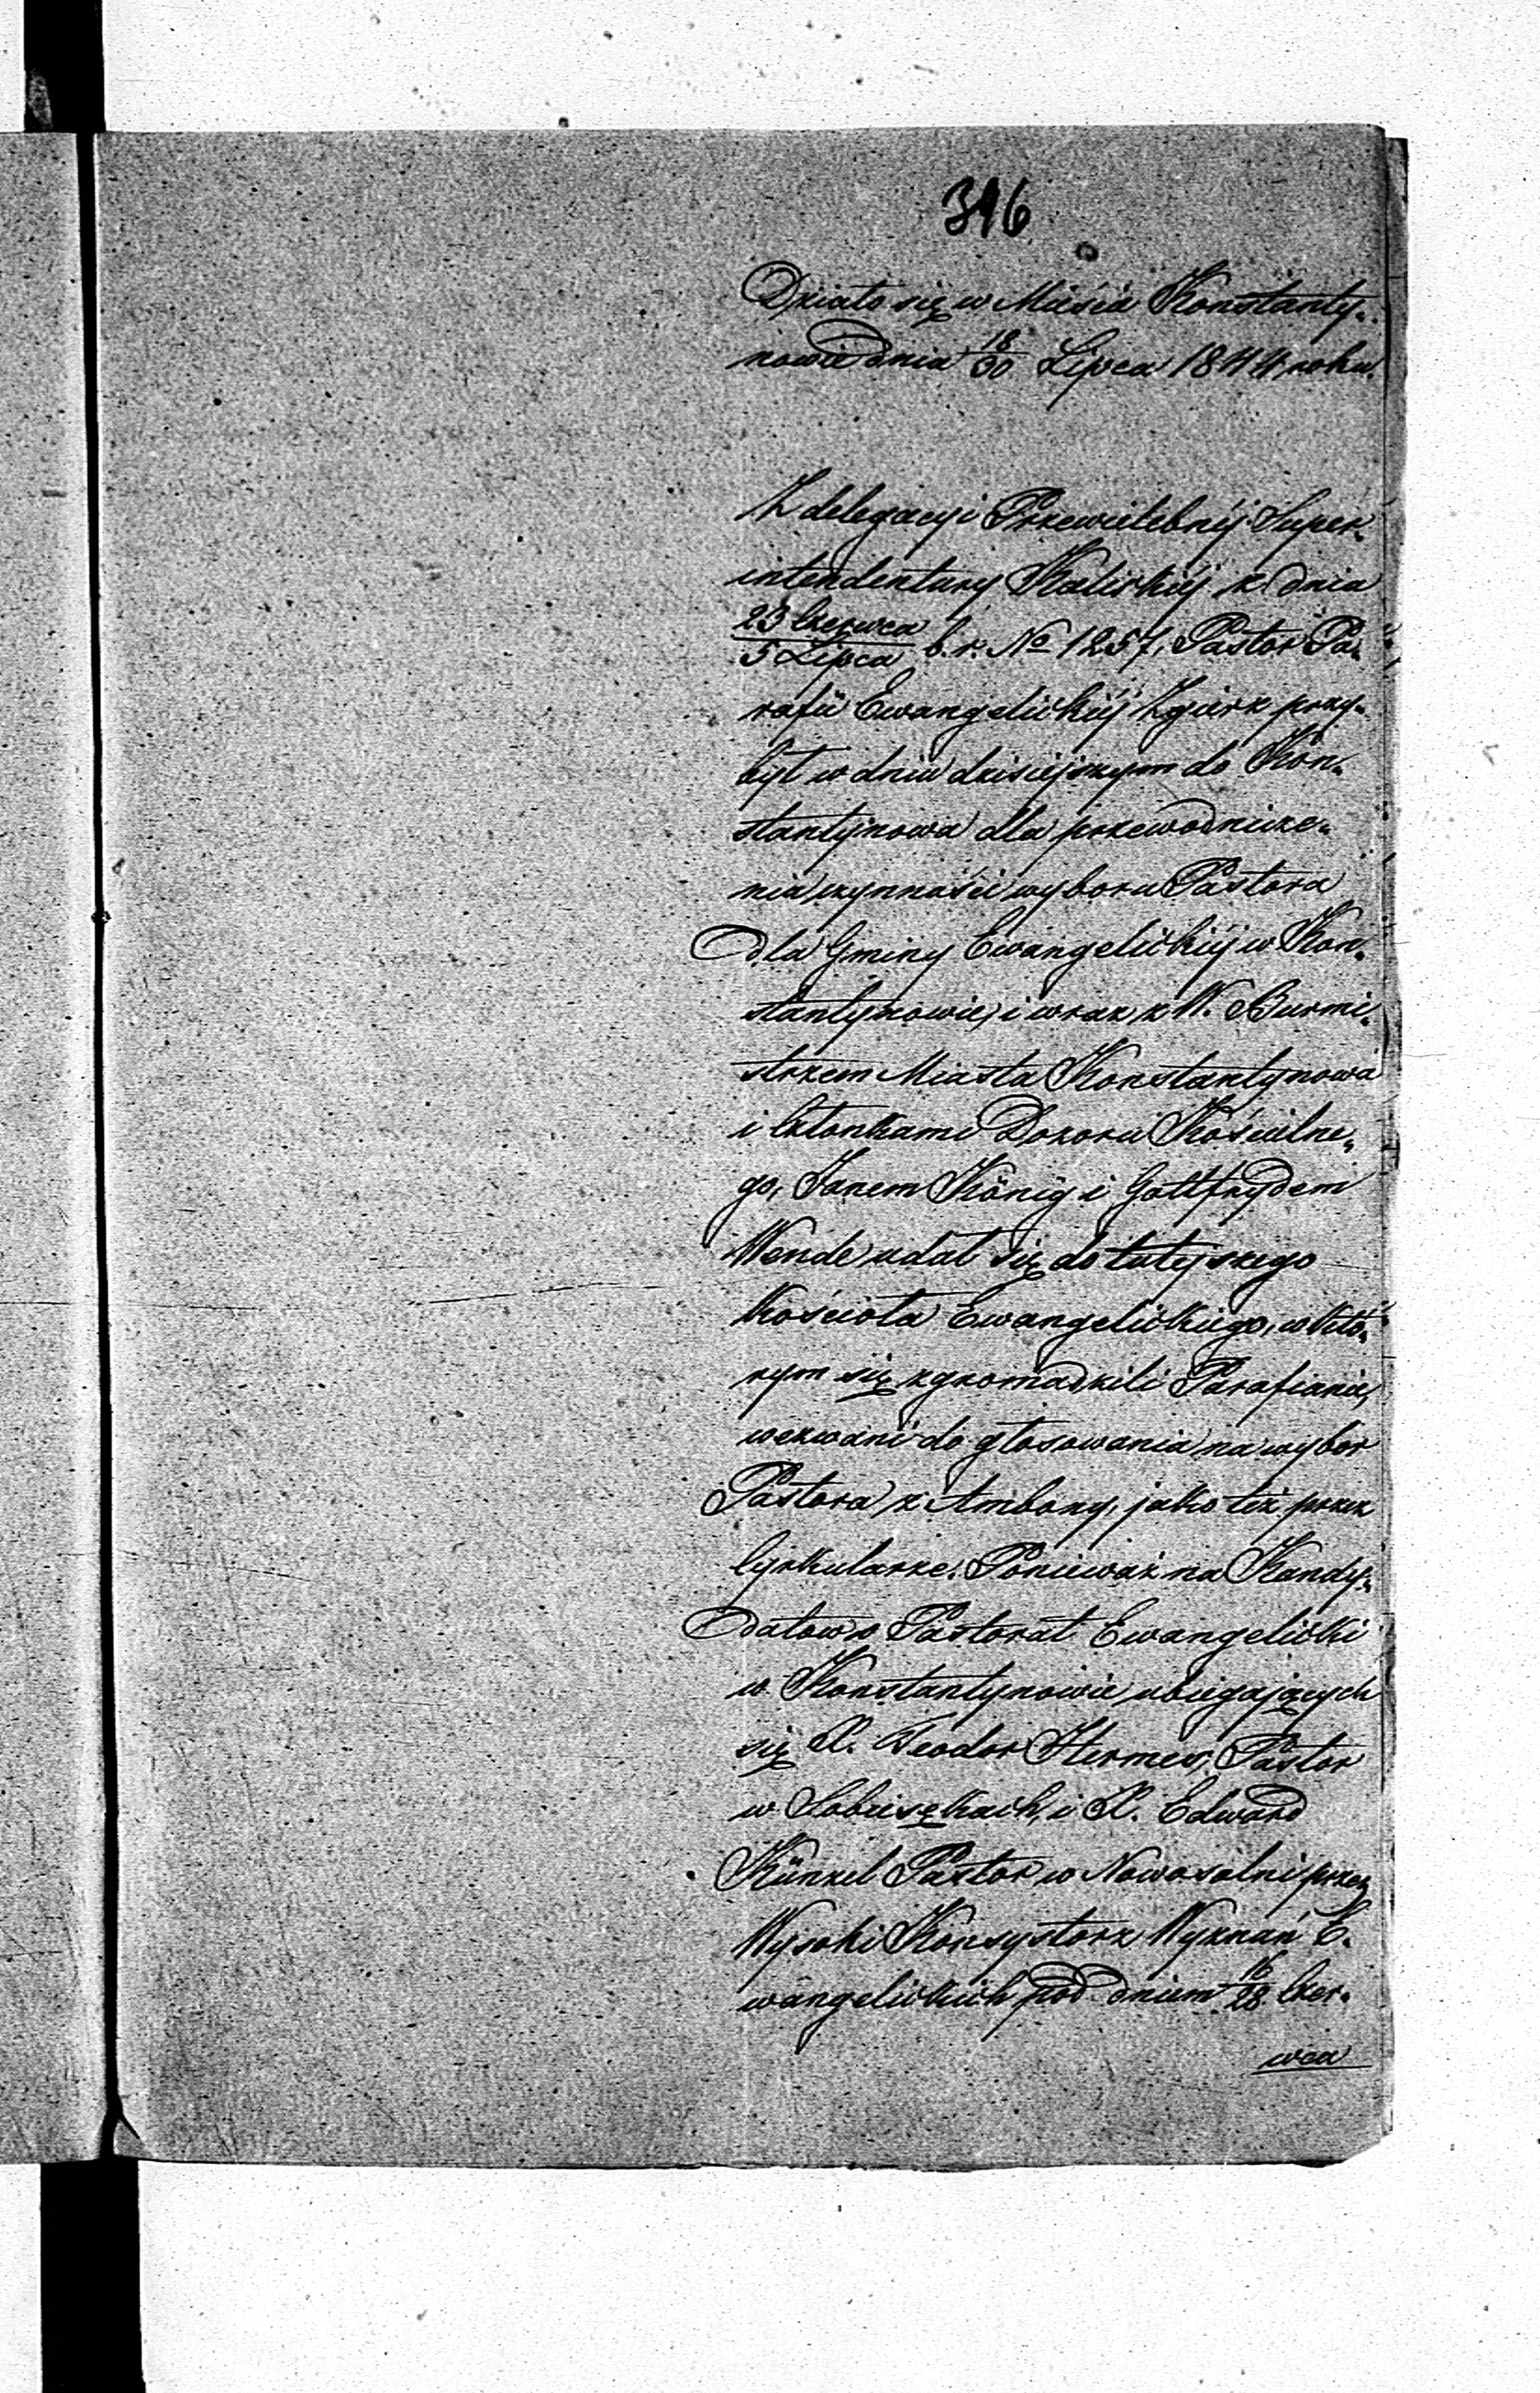 316
Działo się w Mieście Konstanty-
nowie dnia 18/30 Lipca 1844 roku.
Z delegacyi Przewielebnéj Super-
intendentury Kaliskiéj z dnia
23 Czerwca/5 Lipca b. r. No 1257, Pastor Pa-
rafii Ewangelickiéj Zgierz przy-
był w dniu dzisiejszym do Kon-
stantynowa dla przewodnicze-
nia czynności wyboru Pastora
dla Gminy Ewangelickiéj w Kon-
stantynowie, i wraz z W. Burmi-
strzem Miasta Konstantynowa
i Członkami Dozoru Kościelne-
go, Janem König i Gottfrydem
Wende udał się do tutejszego
Kościoła Ewangelickiego, w któ-
rym się zgromadzili Parafianie,
wezwani do głosowania na wybor
Pastora z Ambony, jako też przez
Cyrkularze. Ponieważ na Kandy-
datow o Pastorat Ewangelicki
w Konstantynowie ubiegających
się X. Teodor Hermes, Pastor
w Sobiesękach, i X. Edward
Künzel Pastor w Nowosolni przez
Wysoki Konsystorz Wyznań E-
wangelickich pod dniem 16/28 Czer-
wca